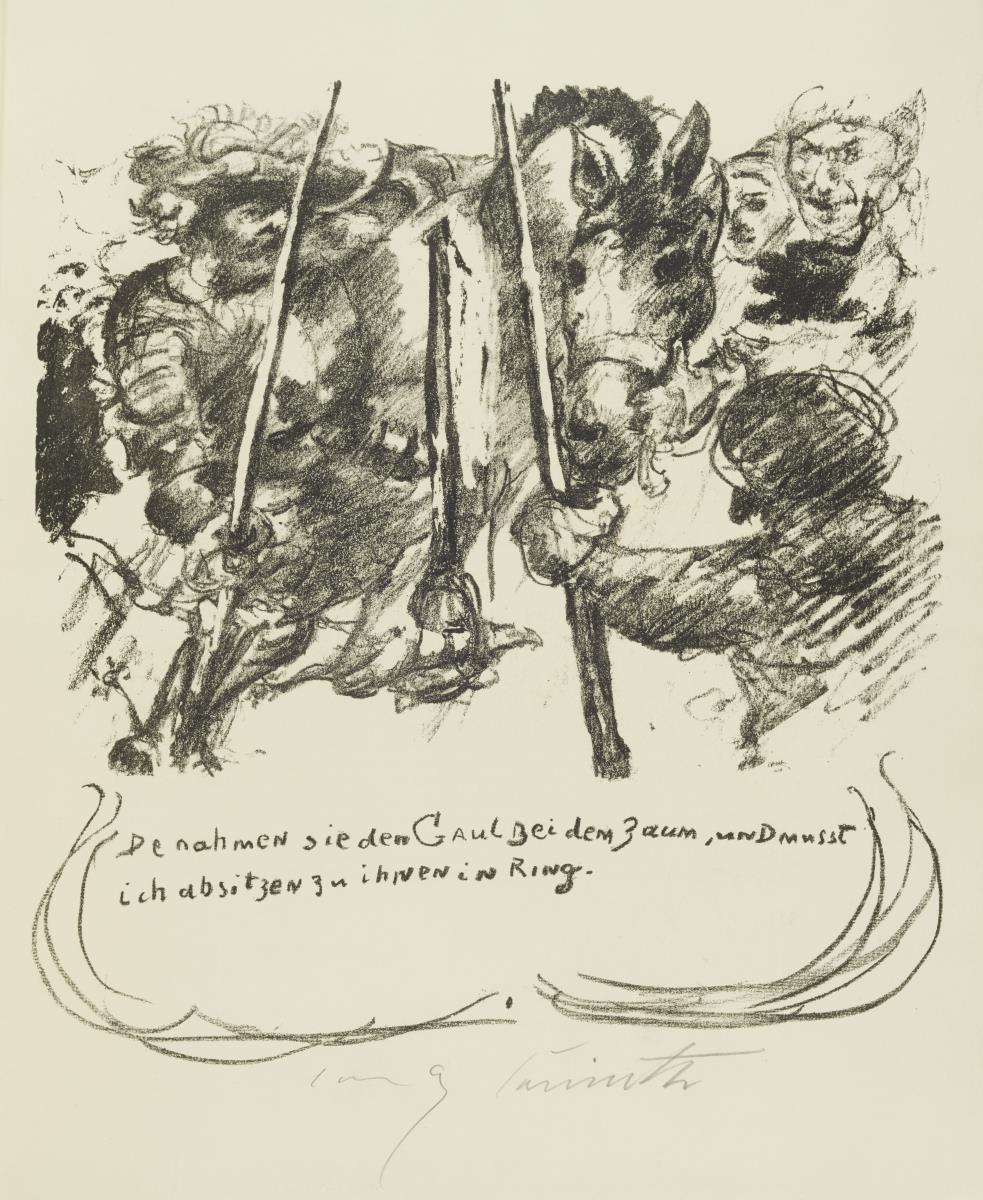 De nahmen sie den Gaul bei dem Zaum, und musst
ich absitzen zu ihnen in Ring.
Lovis Corinth